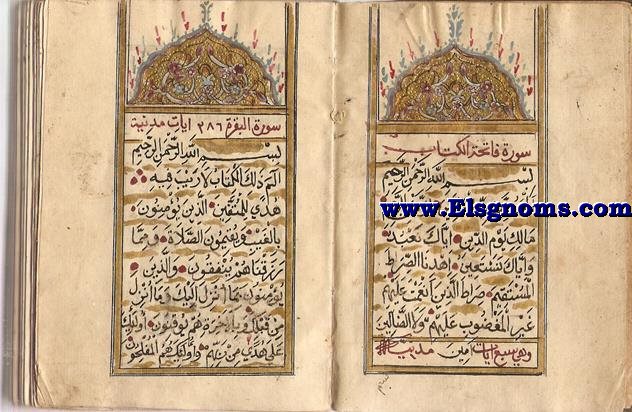 سورة فاتحة الكتاب
بِسْمِ اللهِ الرَّحْمٰنِ الرَّحِيمِ
www.Elsgnoms.com
مالك يَوْمِ الدِّينِ اِيَّاكَ نَعْبُدُ
وَاِيَّاكَ نَسْتَعِينُ اِهْدِنَا الصِّرَاطَ
الْمُسْتَقِيمَ صِرَاطَ الَّذِينَ اَنْعَمْتَ عَلَيْهِمْ
غَيْرِ الْمَغْضُوبِ عَلَيْهِمْ وَلَا الضَّالِّينَ
وهي سبع ايات امين
سورة البقرة ٢٨٦ ايات مدنية
بِسْمِ اللهِ الرَّحْمٰنِ الرَّحِيمِ
الٓمٓ ذٰلِكَ الْكِتَابُ لَا رَيْبَ فِيهِ
هُدًى لِلْمُتَّقِينَ الَّذِينَ يُؤْمِنُونَ
بِالْغَيْبِ وَيُقِيمُونَ الصَّلَاةَ وَمِمَّا
رَزَقْنَاهُمْ يُنْفِقُونَ وَالَّذِينَ
يُؤْمِنُونَ بِمَا اُنْزِلَ اِلَيْكَ وَمَا اُنْزِلَ
مِنْ قَبْلِكَ وَبِالْاٰخِرَةِ هُمْ يُوقِنُونَ اُولٰئِكَ
عَلٰى هُدًى مِنْ رَبِّهِمْ وَاُولٰئِكَ هُمُ الْمُفْلِحُونَ